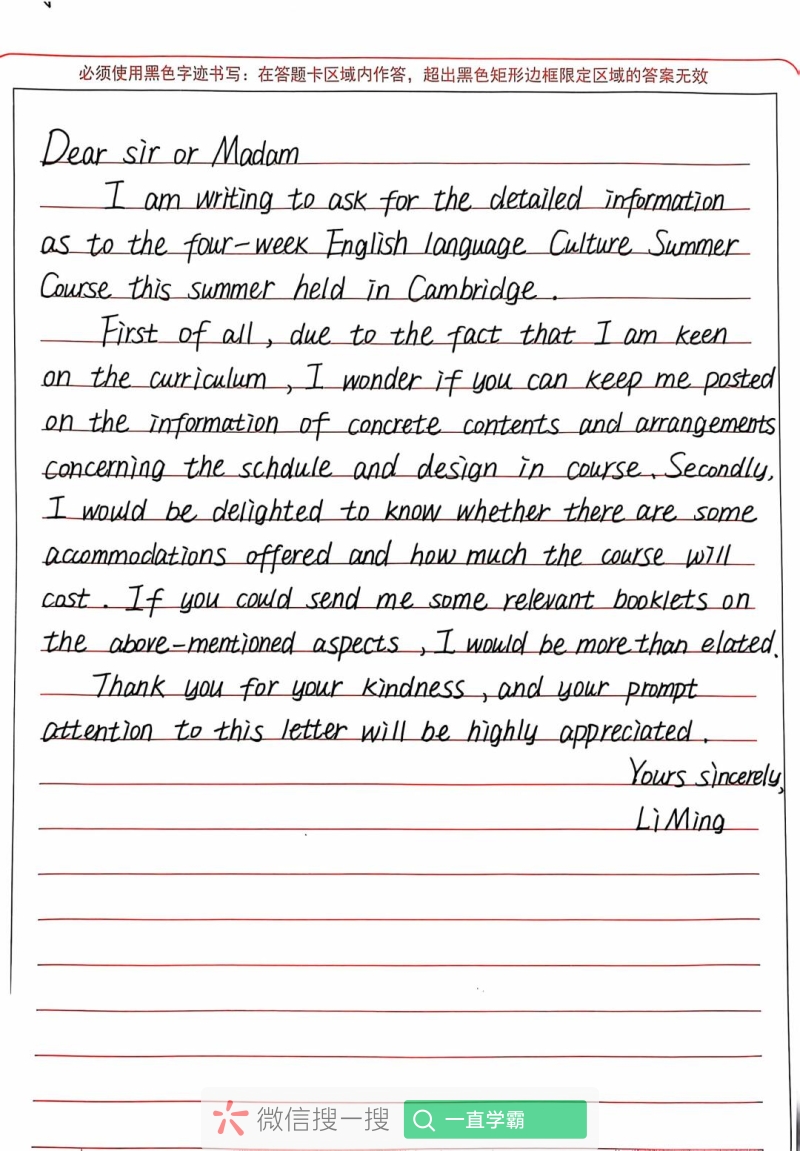 必须使用黑色字迹书写：在答题卡区域内作答，超出黑色矩形边框限定区域的答案无效
Dear sir or Madam
I am writing to ask for the detailed information
as to the four-week English language Culture Summer
Course this summer held in Cambridge.
First of all, due to the fact that I am keen
on the curriculum, I wonder if you can keep me posted
on the information of concrete contents and arrangements
concerning the schdule and design in course. Secondly,
I would be delighted to know whether there are some
accommodations offered and how much the course will
cost. If you could send me some relevant booklets on
the above-mentioned aspects, I would be more than elated.
Thank you for your kindness, and your prompt
attention to this letter will be highly appreciated.
Yours sincerely,
Li Ming
微信搜一搜 一直学霸